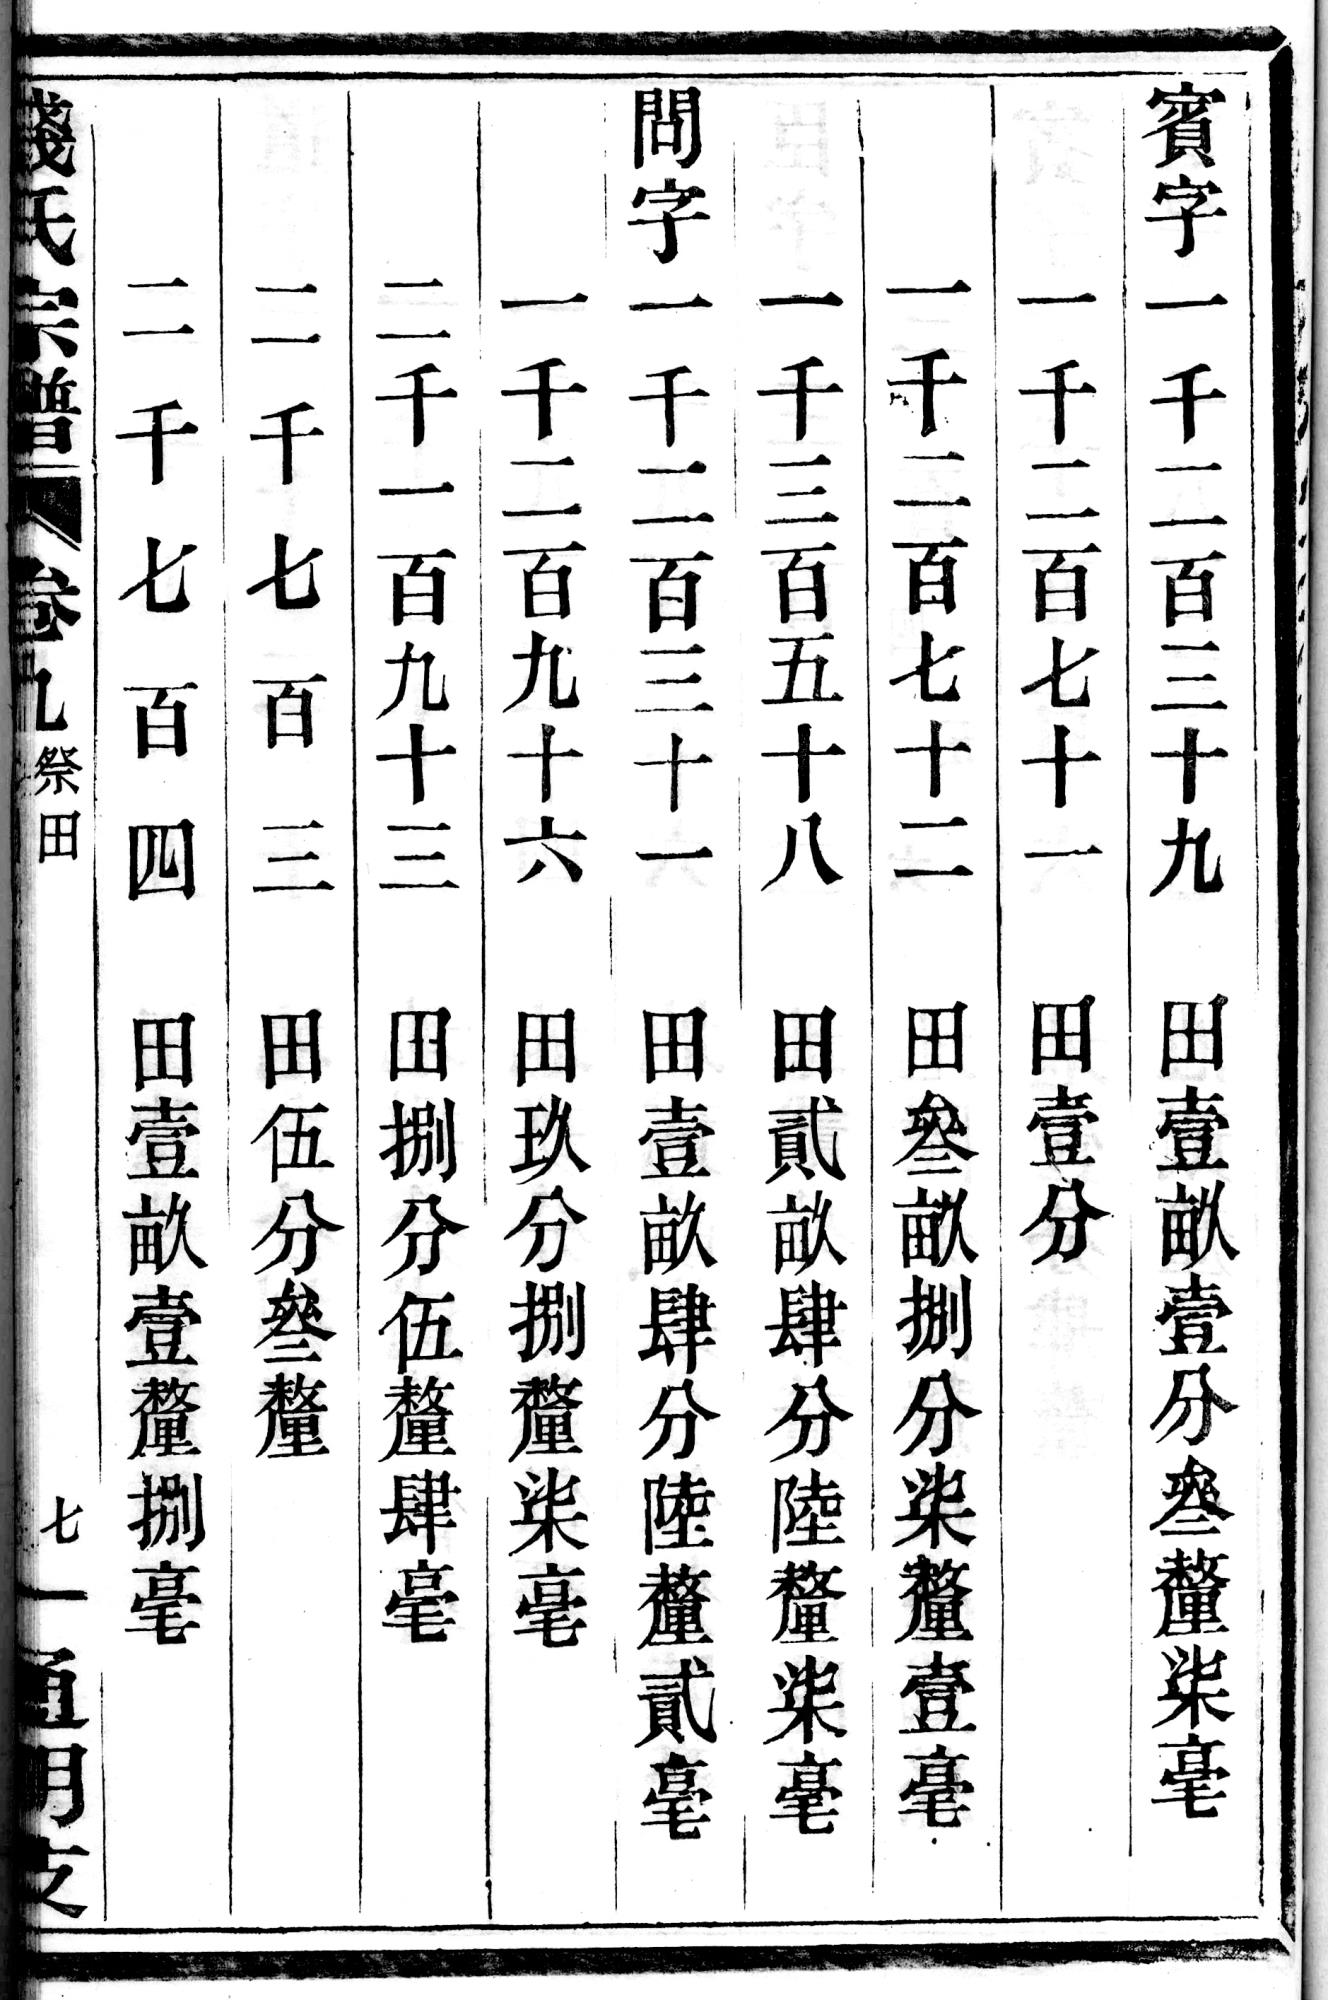 賓字一千二百三十九　田壹畝壹分叄釐柒毫
一千二百七十一　田壹分
一千二百七十二　田叄畝捌分柒釐壹毫
一千三百五十八　田貳畝肆分陸釐柒毫
問字一千二百三十一　田壹畝肆分陸釐貳毫
一千二百九十六　田玖分捌釐柒毫
二千一百九十三　田捌分伍釐肆毫
二千七百三　田伍分叄釐
二千七百四　田壹畝壹釐捌毫
錢氏宗譜　卷九　祭田　七　通明支